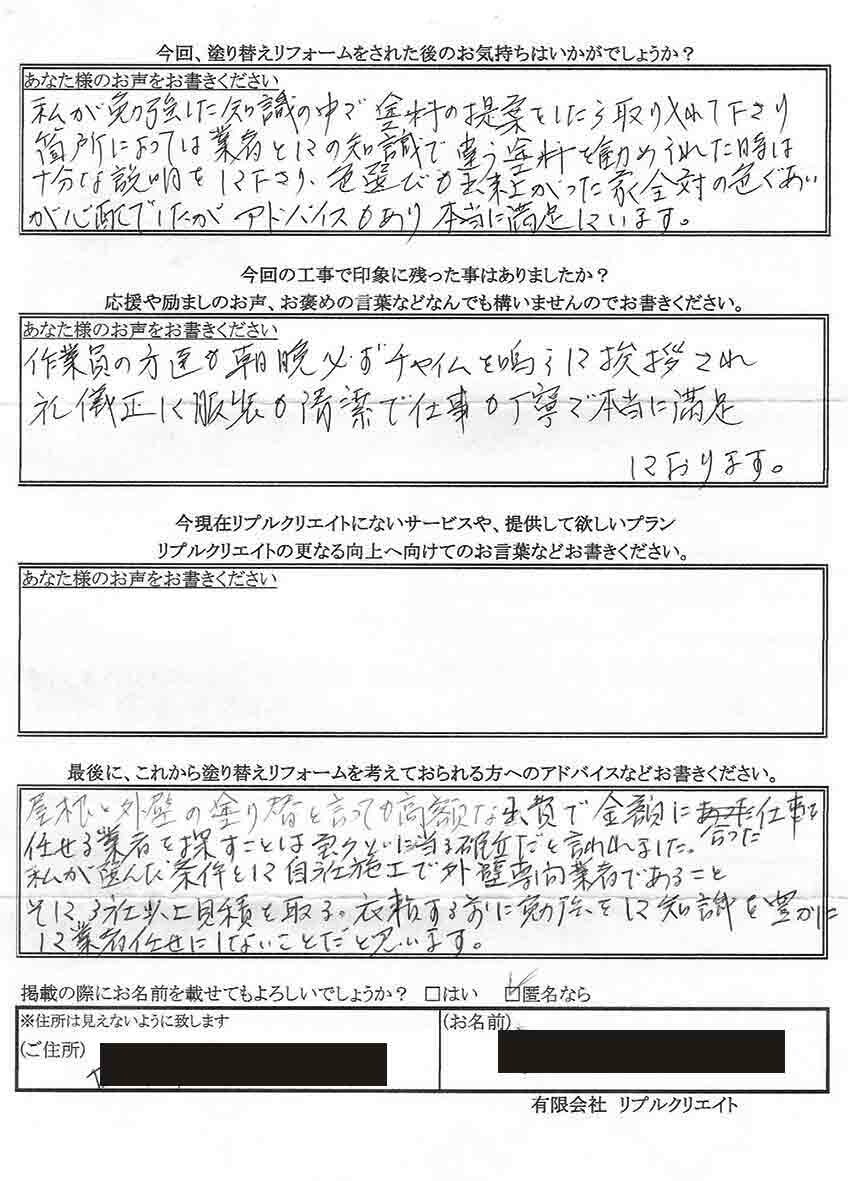 今回、塗り替えリフォームをされた後のお気持ちはいかがでしょうか？
あなた様のお声をお書きください
私が勉強した知識の中で塗料の提案をしたら取り入れて下さり
箇所によっては業者としての知識で違う塗料を勧められた時は
十分な説明をして下さり、色選びも出来上がった家全対の色ぐあい
が心配でしたがアドバイスもあり本当に満足しています。
今回の工事で印象に残った事はありましたか？
応援や励ましのお声、お褒めの言葉などなんでも構いませんのでお書きください。
あなた様のお声をお書きください
作業員の方達も朝晩必ずチャイムを鳴らして挨拶され
礼儀正しく服装も清潔で仕事も丁寧で本当に満足
しております。
今現在リプルクリエイトにないサービスや、提供して欲しいプラン
リプルクリエイトの更なる向上へ向けてのお言葉などお書きください。
あなた様のお声をお書きください
最後に、これから塗り替えリフォームを考えておられる方へのアドバイスなどお書きください。
屋根と外壁の塗り替と言っても高額な出費で金額に合った仕事を
任せる業者を探すことは宝くじに当る確立だと言われました。
私が選んだ条件として自社施工で外壁専門業者であること
そして3社以上見積を取る。依頼する前に勉強をして知識を豊かに
して業者任せにしないことだと思います。
掲載の際にお名前を載せてもよろしいでしょうか？ □はい ☑匿名なら
※住所は見えないように致します
(ご住所)
(お名前)
有限会社 リプルクリエイト